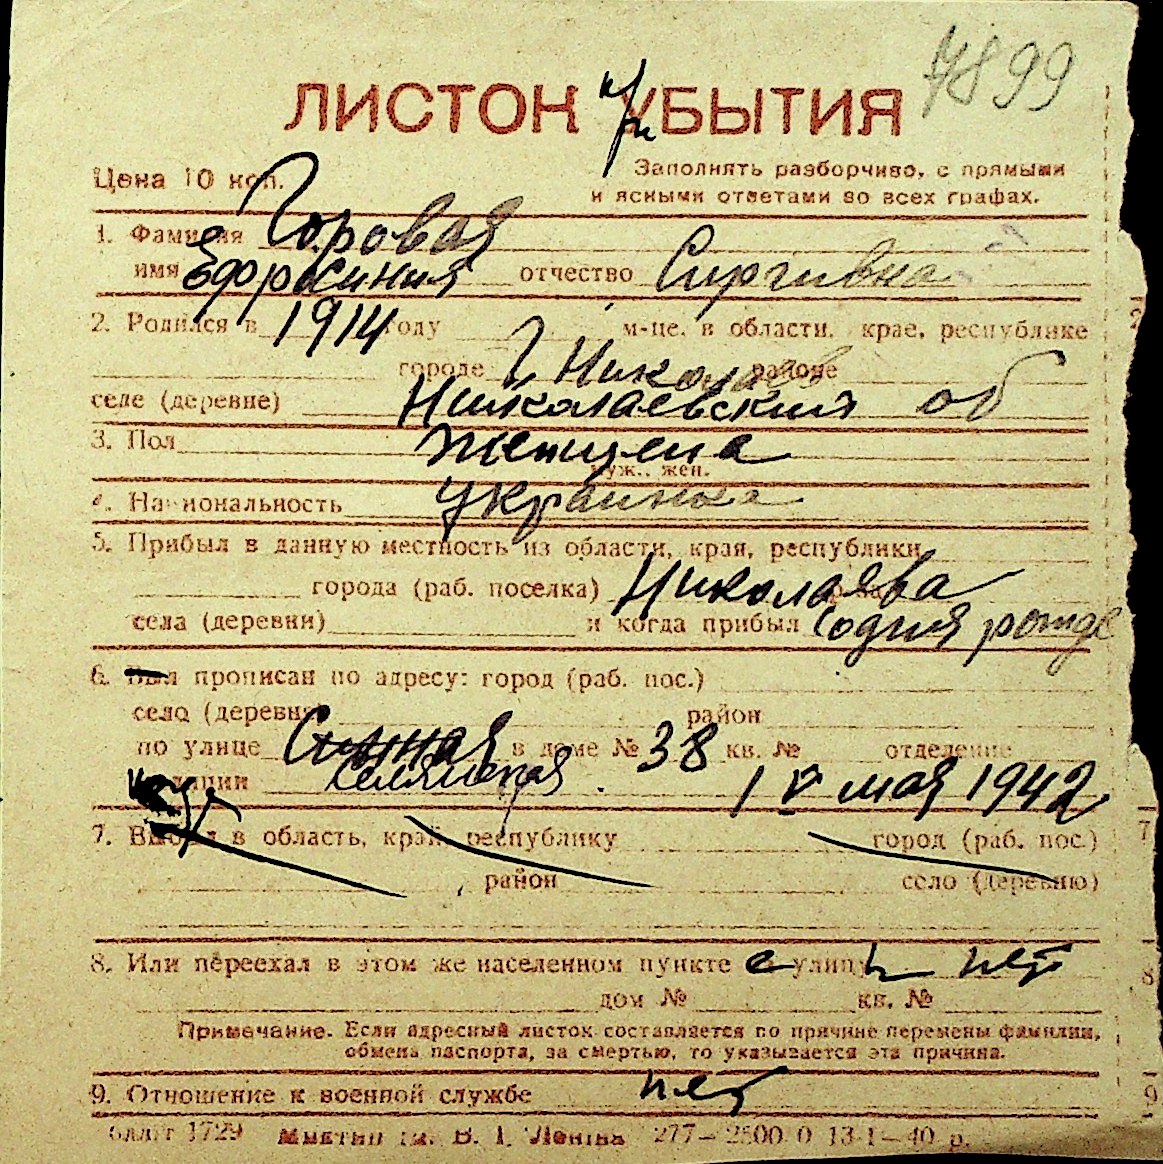 7899
ЛИСТОК При УБЫТИЯ
Цена 10 коп.
Заполнять разборчиво, с прямыми
и ясными ответами во всех графах.
1. Фамилия Горовая
имя Ефросиния отчество Сиргивна
2. Родился в 1914 году м-це. в области, крае, республике
городе г Николаев районе
селе (деревне) Николаевский об
3. Пол Женщена
муж., жен.
4. Национальность украинка
5. Прибыл в данную местность из области, края, республики
города (раб. поселка) Николаева
села (деревни) и когда прибыл содня рожде
6. Был прописан по адресу: город (раб. пос.)
село (деревня) район
по улице Синная в доме № 38 кв. № отделение
милиции 12 мая 1942
7. Выбыл в область, край, республику город (раб. пос.)
район село (деревню)
8. Или переехал в этом же населенном пункте с улицы нет
дом № кв. №
Примечание. Если адресный листок составляется по причине перемены фамилии,
обмена паспорта, за смертью, то указывается эта причина.
9. Отношение к военной службе нет
1729 В. І. Леніна 277—2500.0 13-1—40 р.